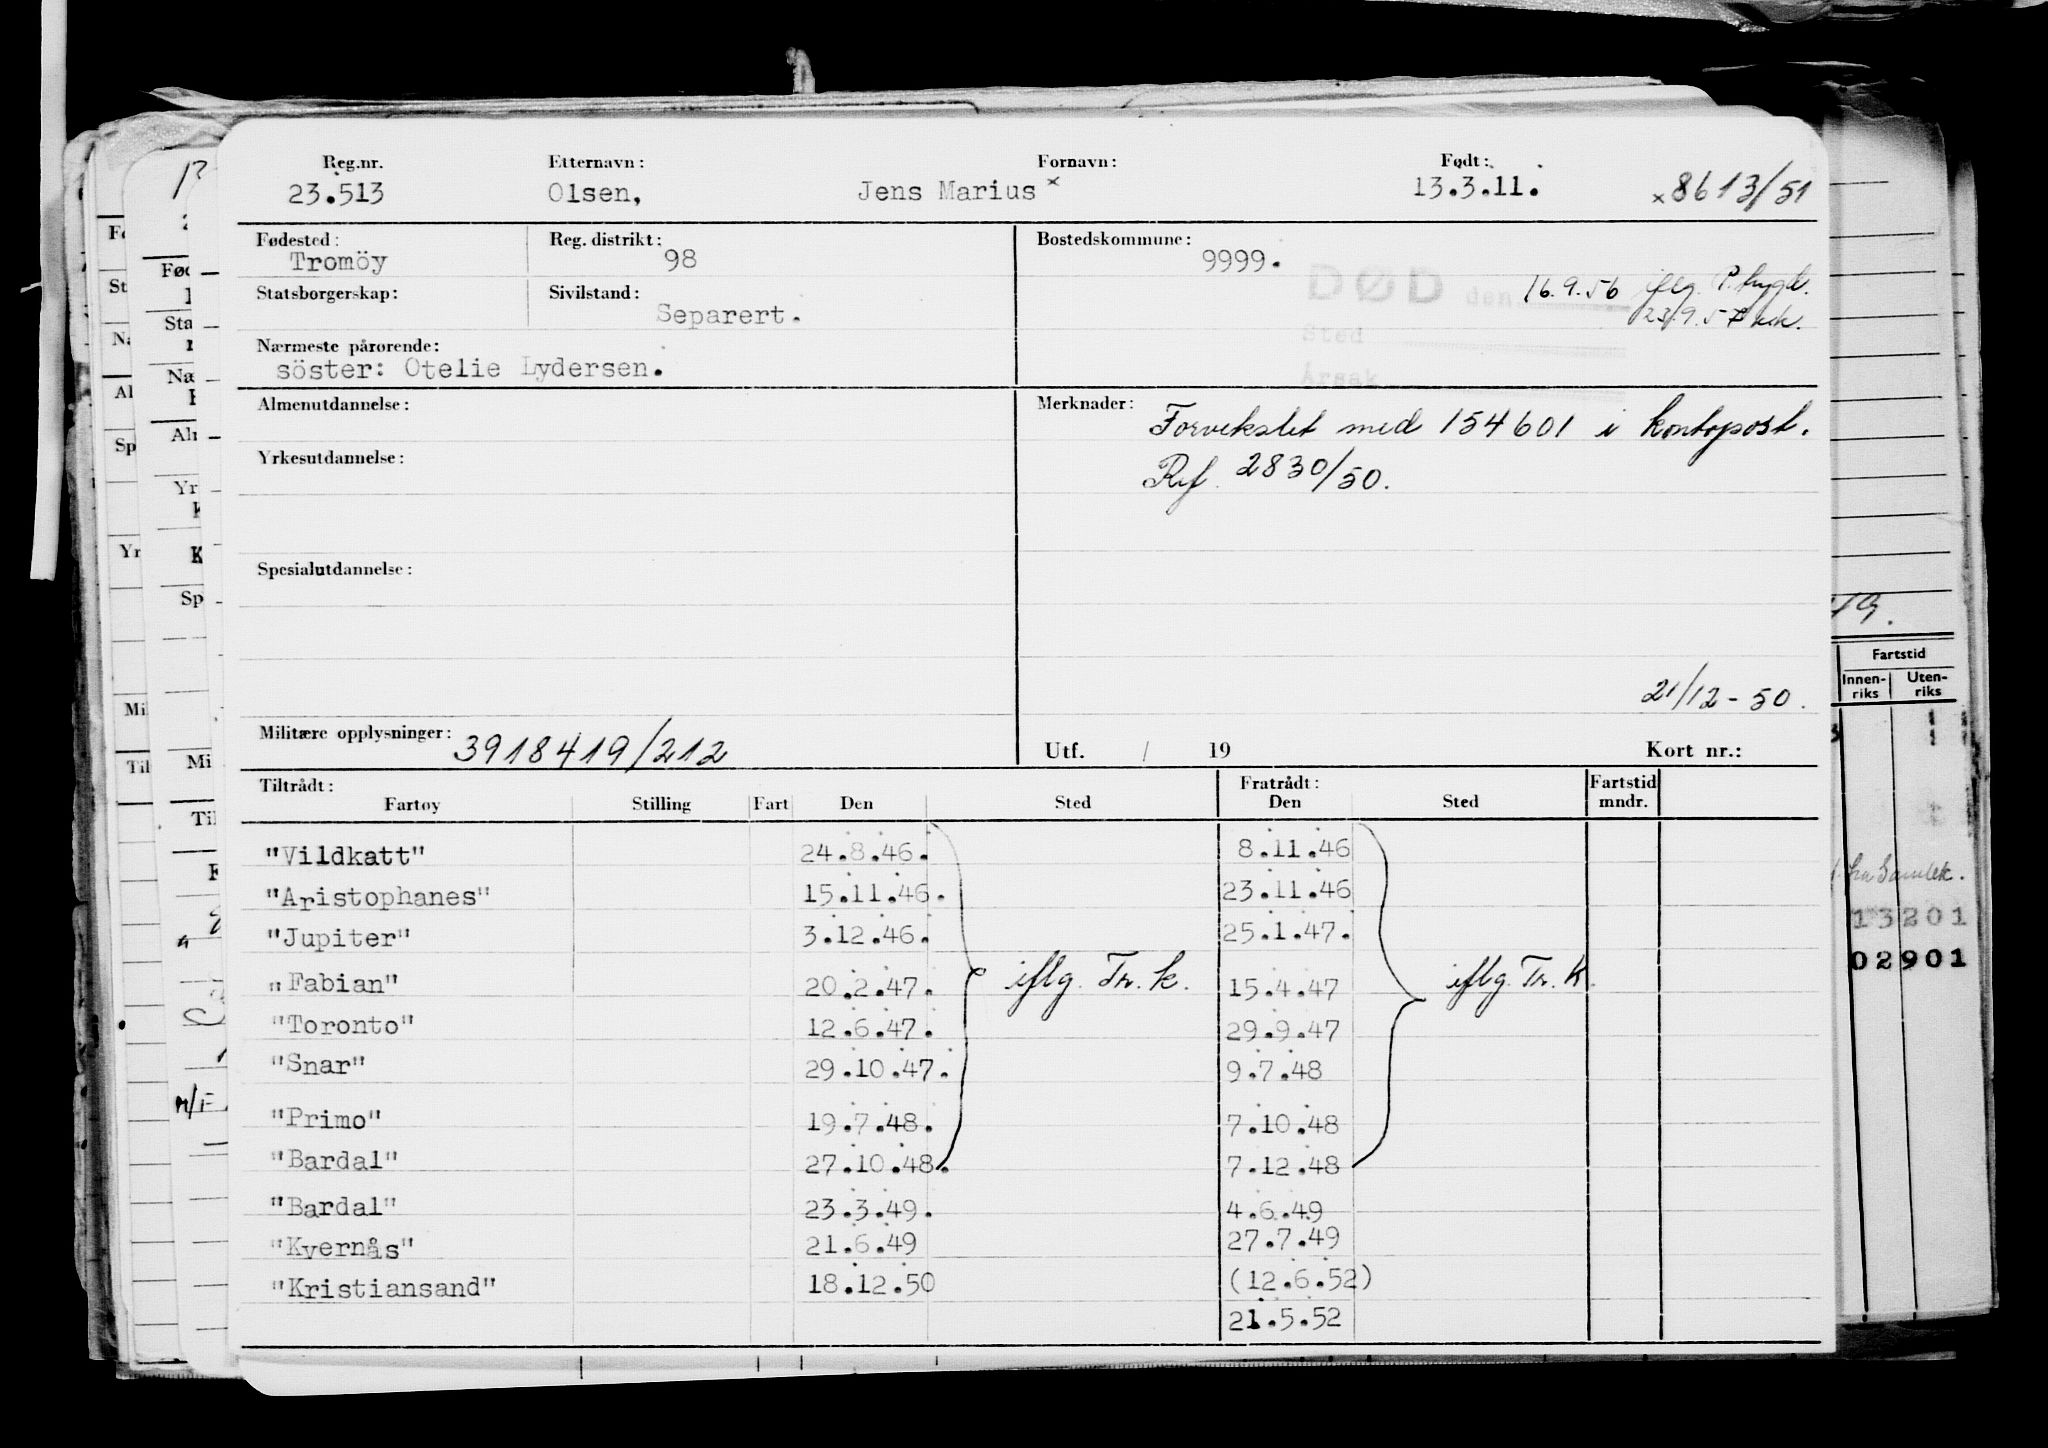 Reg.nr. Etternavn: Fornavn: Født:
23.513 Olsen, Jens Marius x 13.3.11. x8613/51
Fødested: Reg. distrikt: Bostedskommune:
Tromöy 98 9999.
DØD den 16.9.56 iflg. P.
Statsborgerskap: Sivilstand:
Separert. 23/9.57
Sted
Nærmeste pårørende:
söster: Otelie Lydersen.
Årsak
Almenutdannelse: Merknader:
Forvekslet med 154601 i kontopost.
Yrkesutdannelse:
Ref. 2830/50.
Spesialutdannelse:
21/12-50.
Militære opplysninger: 3918419/212 Utf. / 19 Kort nr.:
Tiltrådt: Fratrådt: Fartstid
Fartøy Stilling Fart Den Sted Den Sted mndr.
"Vildkatt" 24.8.46. 8.11.46
"Aristophanes" 15.11.46. 23.11.46
"Jupiter" 3.12.46. 25.1.47.
"Fabian" 20.2.47. iflg. Tr. k. 15.4.47 iflg. Tr. K.
"Toronto" 12.6.47. 29.9.47
"Snar" 29.10.47. 9.7.48
"Primo" 19.7.48. 7.10.48
"Bardal" 27.10.48. 7.12.48
"Bardal" 23.3.49. 4.6.49
"Kvernås" 21.6.49 27.7.49
"Kristiansand" 18.12.50 (12.6.52)
21.5.52
Fartstid
Innen- Uten-
riks riks
13201
02901